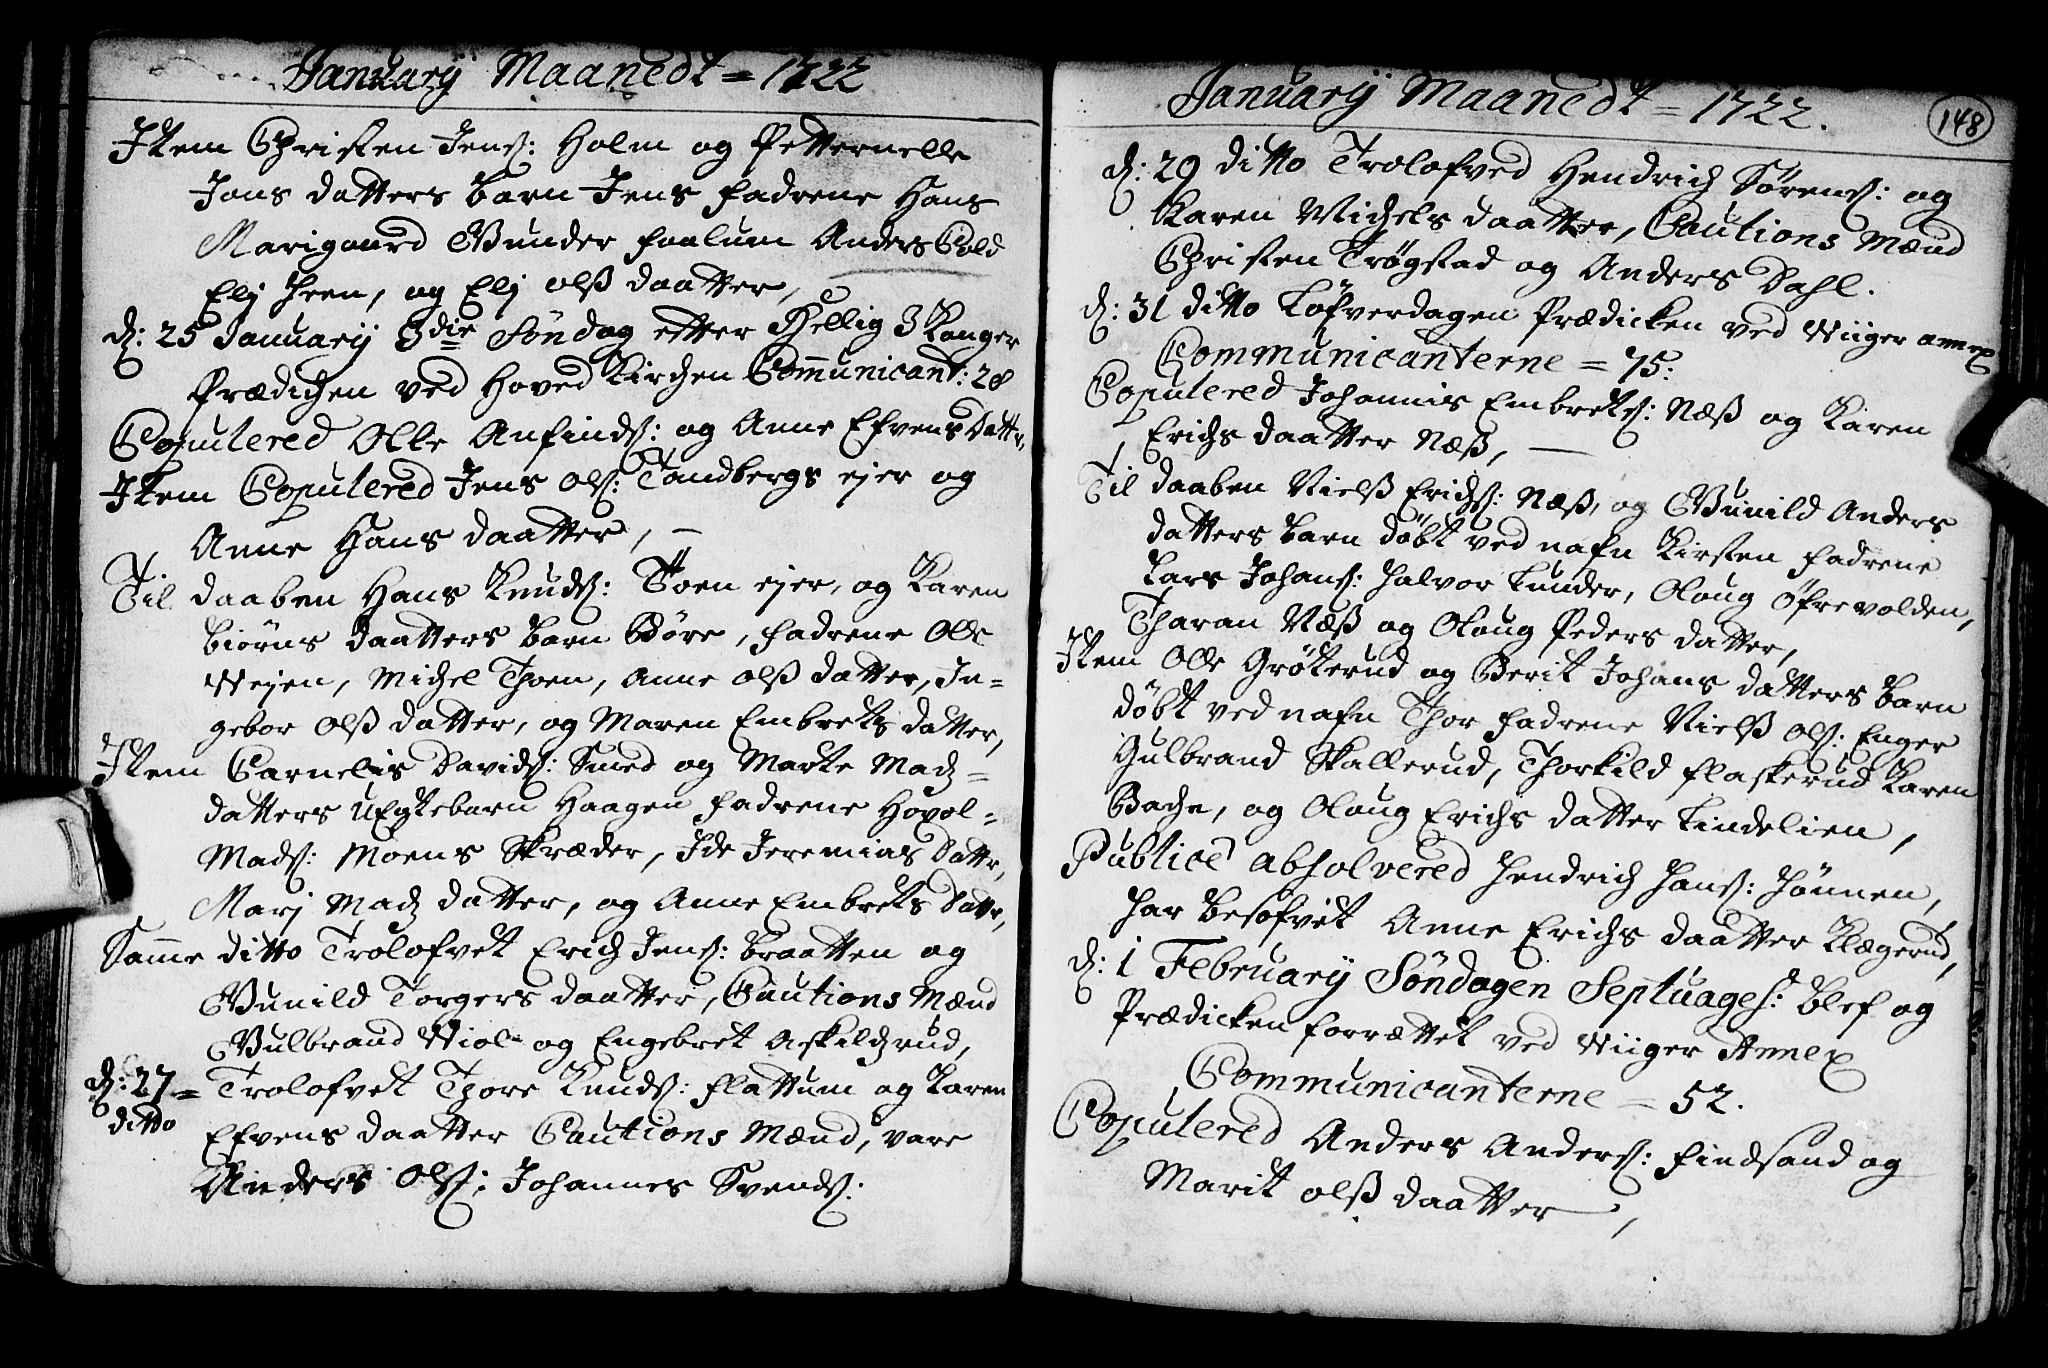 January Maanedt = 1722
Item Christen Jens: Holm og Petternelle
Jons datters barn Jens fadrene Hans
Marigaard Gunder faalum Anders Cold
Elj heen, og Elj olß daatter,
d: 25 January 3die Söndag etter Hellig 3 Konger
Prædichen ved Hoved Kirchen Communicant: 28
Copulered Olle Anfinds: og Anne Efvens Dattr,
Item Copulered Jens Ols: Tandbergs ejer og
Anne Hans daatter, –
Til daaben Hans Knuds: Toen ejer, og Karen
biörns daatters barn Böre, fadrene Olle
Wejen, Michel Thoen, Anne olß datter, In-
gebor olß datter, og Maren Embrets datter,
Item Carnelis Davids: Smed og Marte Madz-
datters uEgtebarn Haagen fadrene Hoxol-
Mads: Moens Skræder, Ide Jeremias Dattr,
Marj Madz datter, og Anne Embrets Dattr,
Samme ditto Trolofvet Erich Jens: braatten og
Gunild Torgers daatter, Cautions Mænd
Gulbrand Wiol- og Engebret Askildzrud,
d: 27 = Trolofvet Thore Knuds: flattum og Karen
ditto Efvens daatter Cautions Mænd, vare
Anders Ols: Johannes Svends:
January Maanedt = 1722.
148
d: 29 ditto Trolofved Hendrich Sörens: og
Karen Michels daatter, Cautions Mænd
Christen Trögstad og Anders Dahl.
d: 31 ditto Löfverdagen Prædicken ved Wiiger annex
Communicanterne = 75:
Copulered Johannis Embrets: Næß og Karen
Erichs daatter Næß, –
Til daaben Nielß Erichs: Næß, og Gunild Anders
datters barn döbt ved nafn Kirsten fadrene
Lars Johans: Halvor Lunder, Olaug Öfrevolden,
Tharan Næß og Olaug Peders datter,
Item Olle Grökerud og Berit Johans datters barn
döbt ved nafn Thor fadrene Nielß Ols: Enger
Gulbrand Skallerud, Thorkild flaskerud Karen
Bache, og Olaug Erichs datter Lindelien,
Publice absolvered Hendrich Hans: Hönnen,
har besofvet Anne Erichs daatter Klægerud,
d: 1 February Söndagen Septuages: blef og
Prædicken forrættet ved Wiiger Annex
Communicanterne = 52.
Copulered Anders Anders: findsand og
Marit olß daatter,